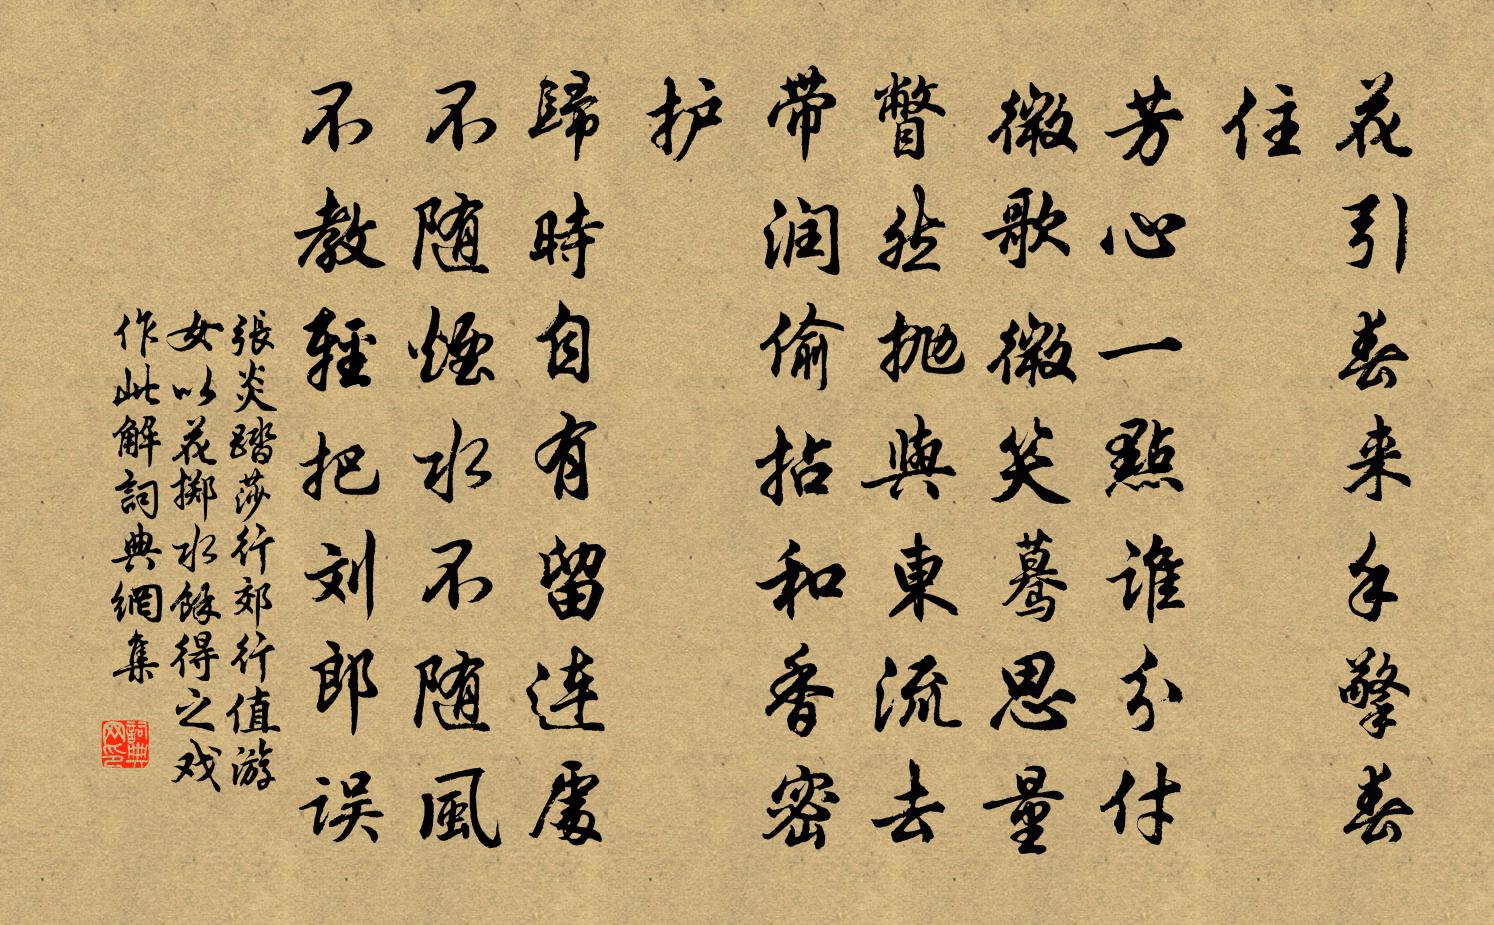 花引春来手擎春
住
芳心一點谁分付
微歌微笑蓦思量
瞥然抛與東流去
带润偷拈和香密
护
歸時自有留连處
不随煙水不随風
不教輕把刘郎误
張炎踏莎行郊行值游
女以花掷水餘得之戏
作此解詞典網集
詞典
网印